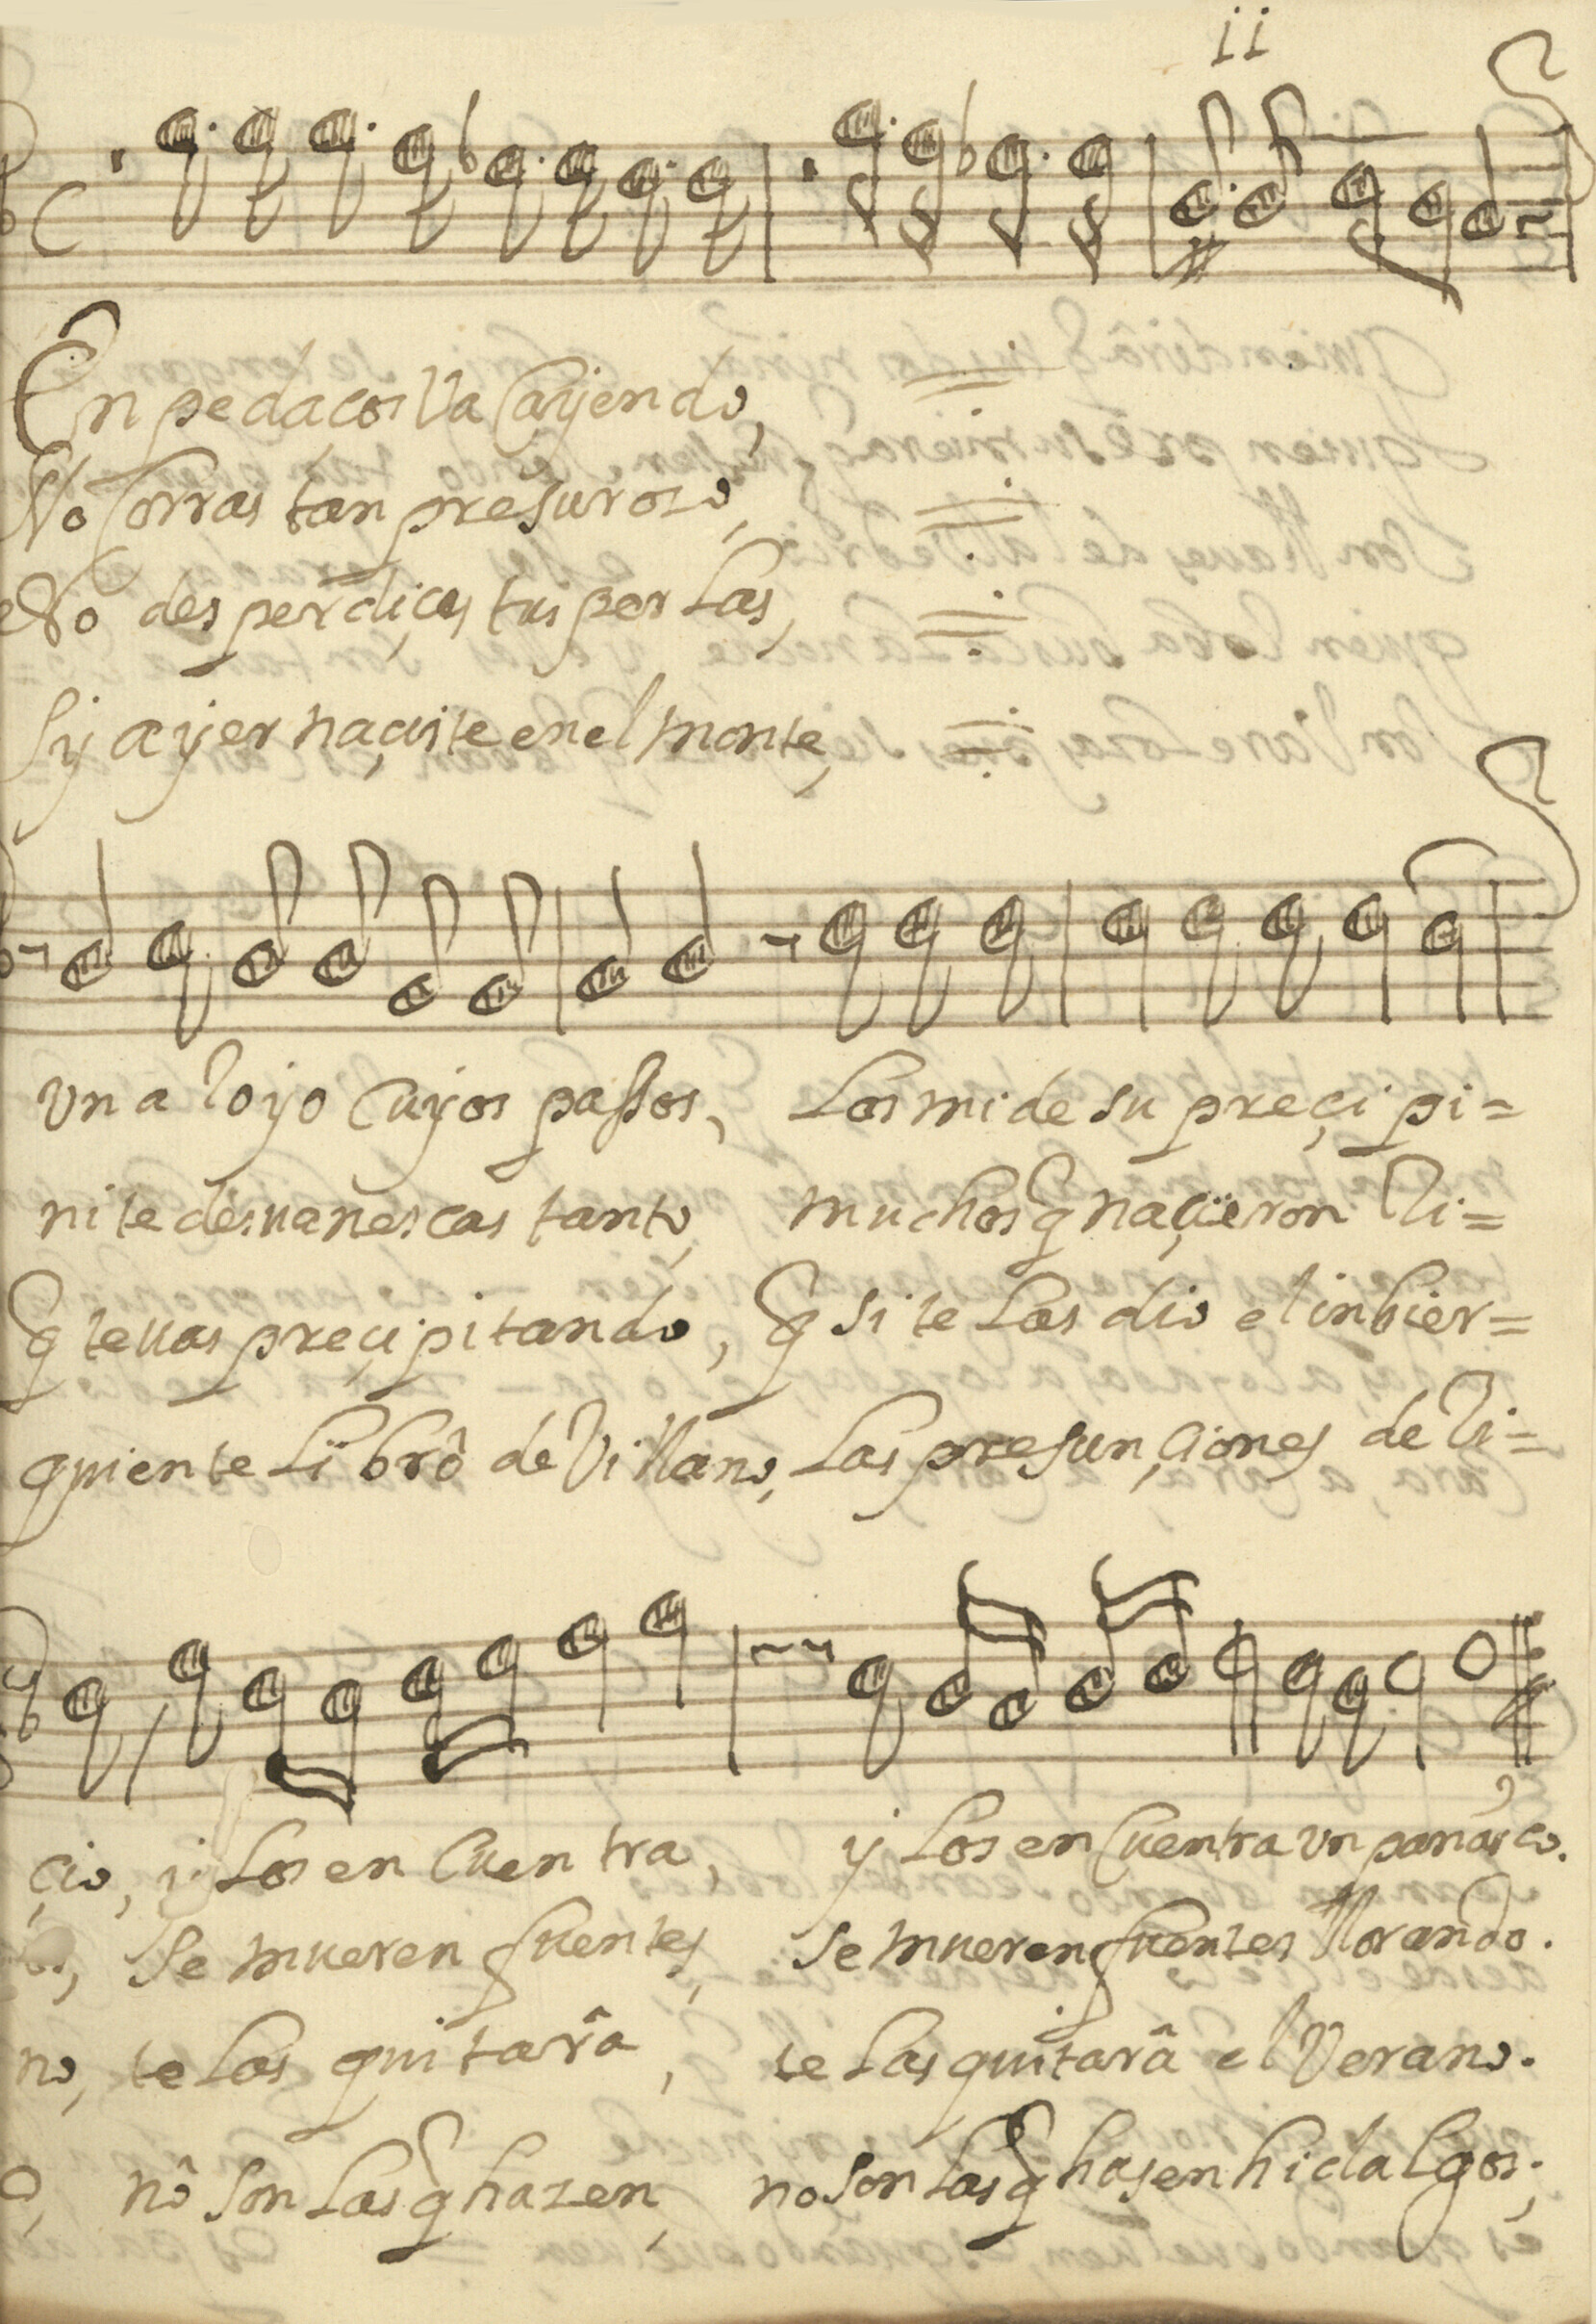 ii
En pedaços Va Cayendo,
No Corras tan presuroso,
No desperdiçes tus perlas,
Sy ayer naçiste en el monte,
Vn aroyo Cuyos passos, Los mide su preçipi=
ni te desuanescas tanto, muchos q naçieron Ri=
q te uas preçipitando, q si te Las dio el inbier=
quien te Librô de Villano, Las presunçiones de Ri=
çio, y Los en Cuentra, y Los en Cuentra vn panasco.
Se mueren fuentes, Se mueren fuentes llorando.
no, te Las quitarâ, te Las quitarâ el Verano.
o, nô son Las q hazen, no son Las q hasen hidalgos;